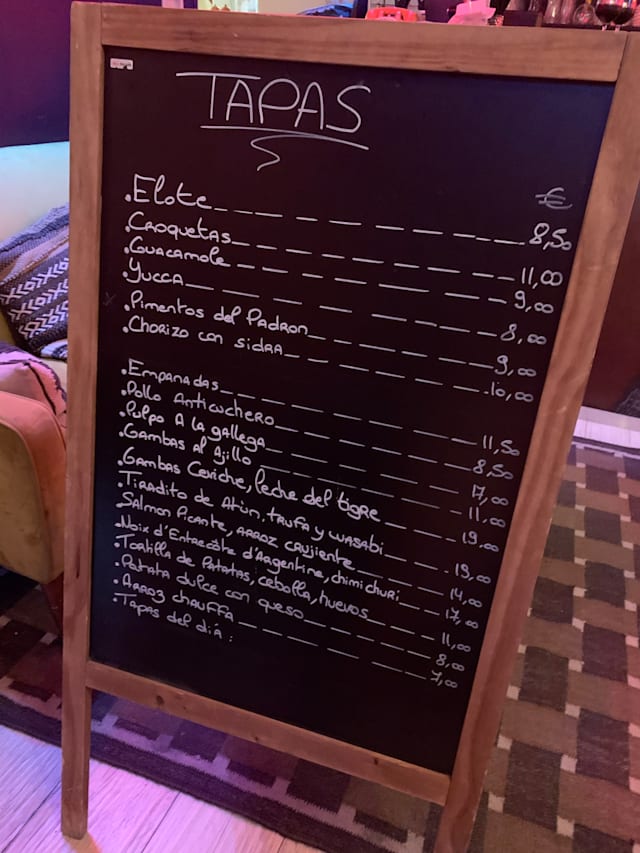 TAPAS
€
.Elote 8,50
.Croquetas 11,00
.Guacamole 9,00
.Yucca 8,00
.Pimentos del Padron 9,00
.Chorizo con sidra 10,00
.Empanadas 11,50
.Pollo Anticuchero 8,50
.Pulpo A la gallega 17,00
.Gambas Al Ajillo 11,00
.Gambas Ceviche, leche del tigre 19,00
.Tiradito de Atùn, trufa y wasabi 19,00
Salmon Picante, arroz crujiente 14,00
.Noix d'Entrecôte d'Argentine, chimichuri 17,00
.Tortilla de Patatas, cebolla, huevos 11,00
.Patata dulce con queso 8,00
.Arroz chauffa 7,00
.Tapas del día :